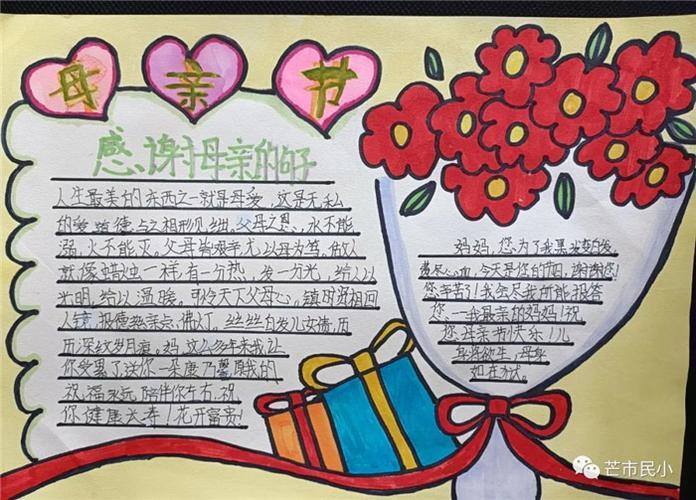 母亲节
感谢母亲的好
人生最美的东西之一就是母爱，这是无私
的爱，道德与之相形见绌。父母之恩，水不能
溺，火不能灭。父母皆艰辛尤以母为笃。做人
就像蜡烛一样有一分热，发一分光，给人以
光明，给以温暖。可怜天下父母心。
人 报德 点佛灯。丝丝白发儿女债，历
历深纹岁月痕。妈，这么多年来我让
你受累了送你一朵康乃馨 我的
祝福永远陪伴你左右。祝
你健康长寿！花开富贵！
妈妈，您为了我黑发 白发
费尽心血，今天是您的 ，谢谢您！
您辛苦了！我会尽我所能报答
您，一我最亲的妈妈！祝
您母亲节快乐！儿
身将欲生，母身
如在 。
芒市民小